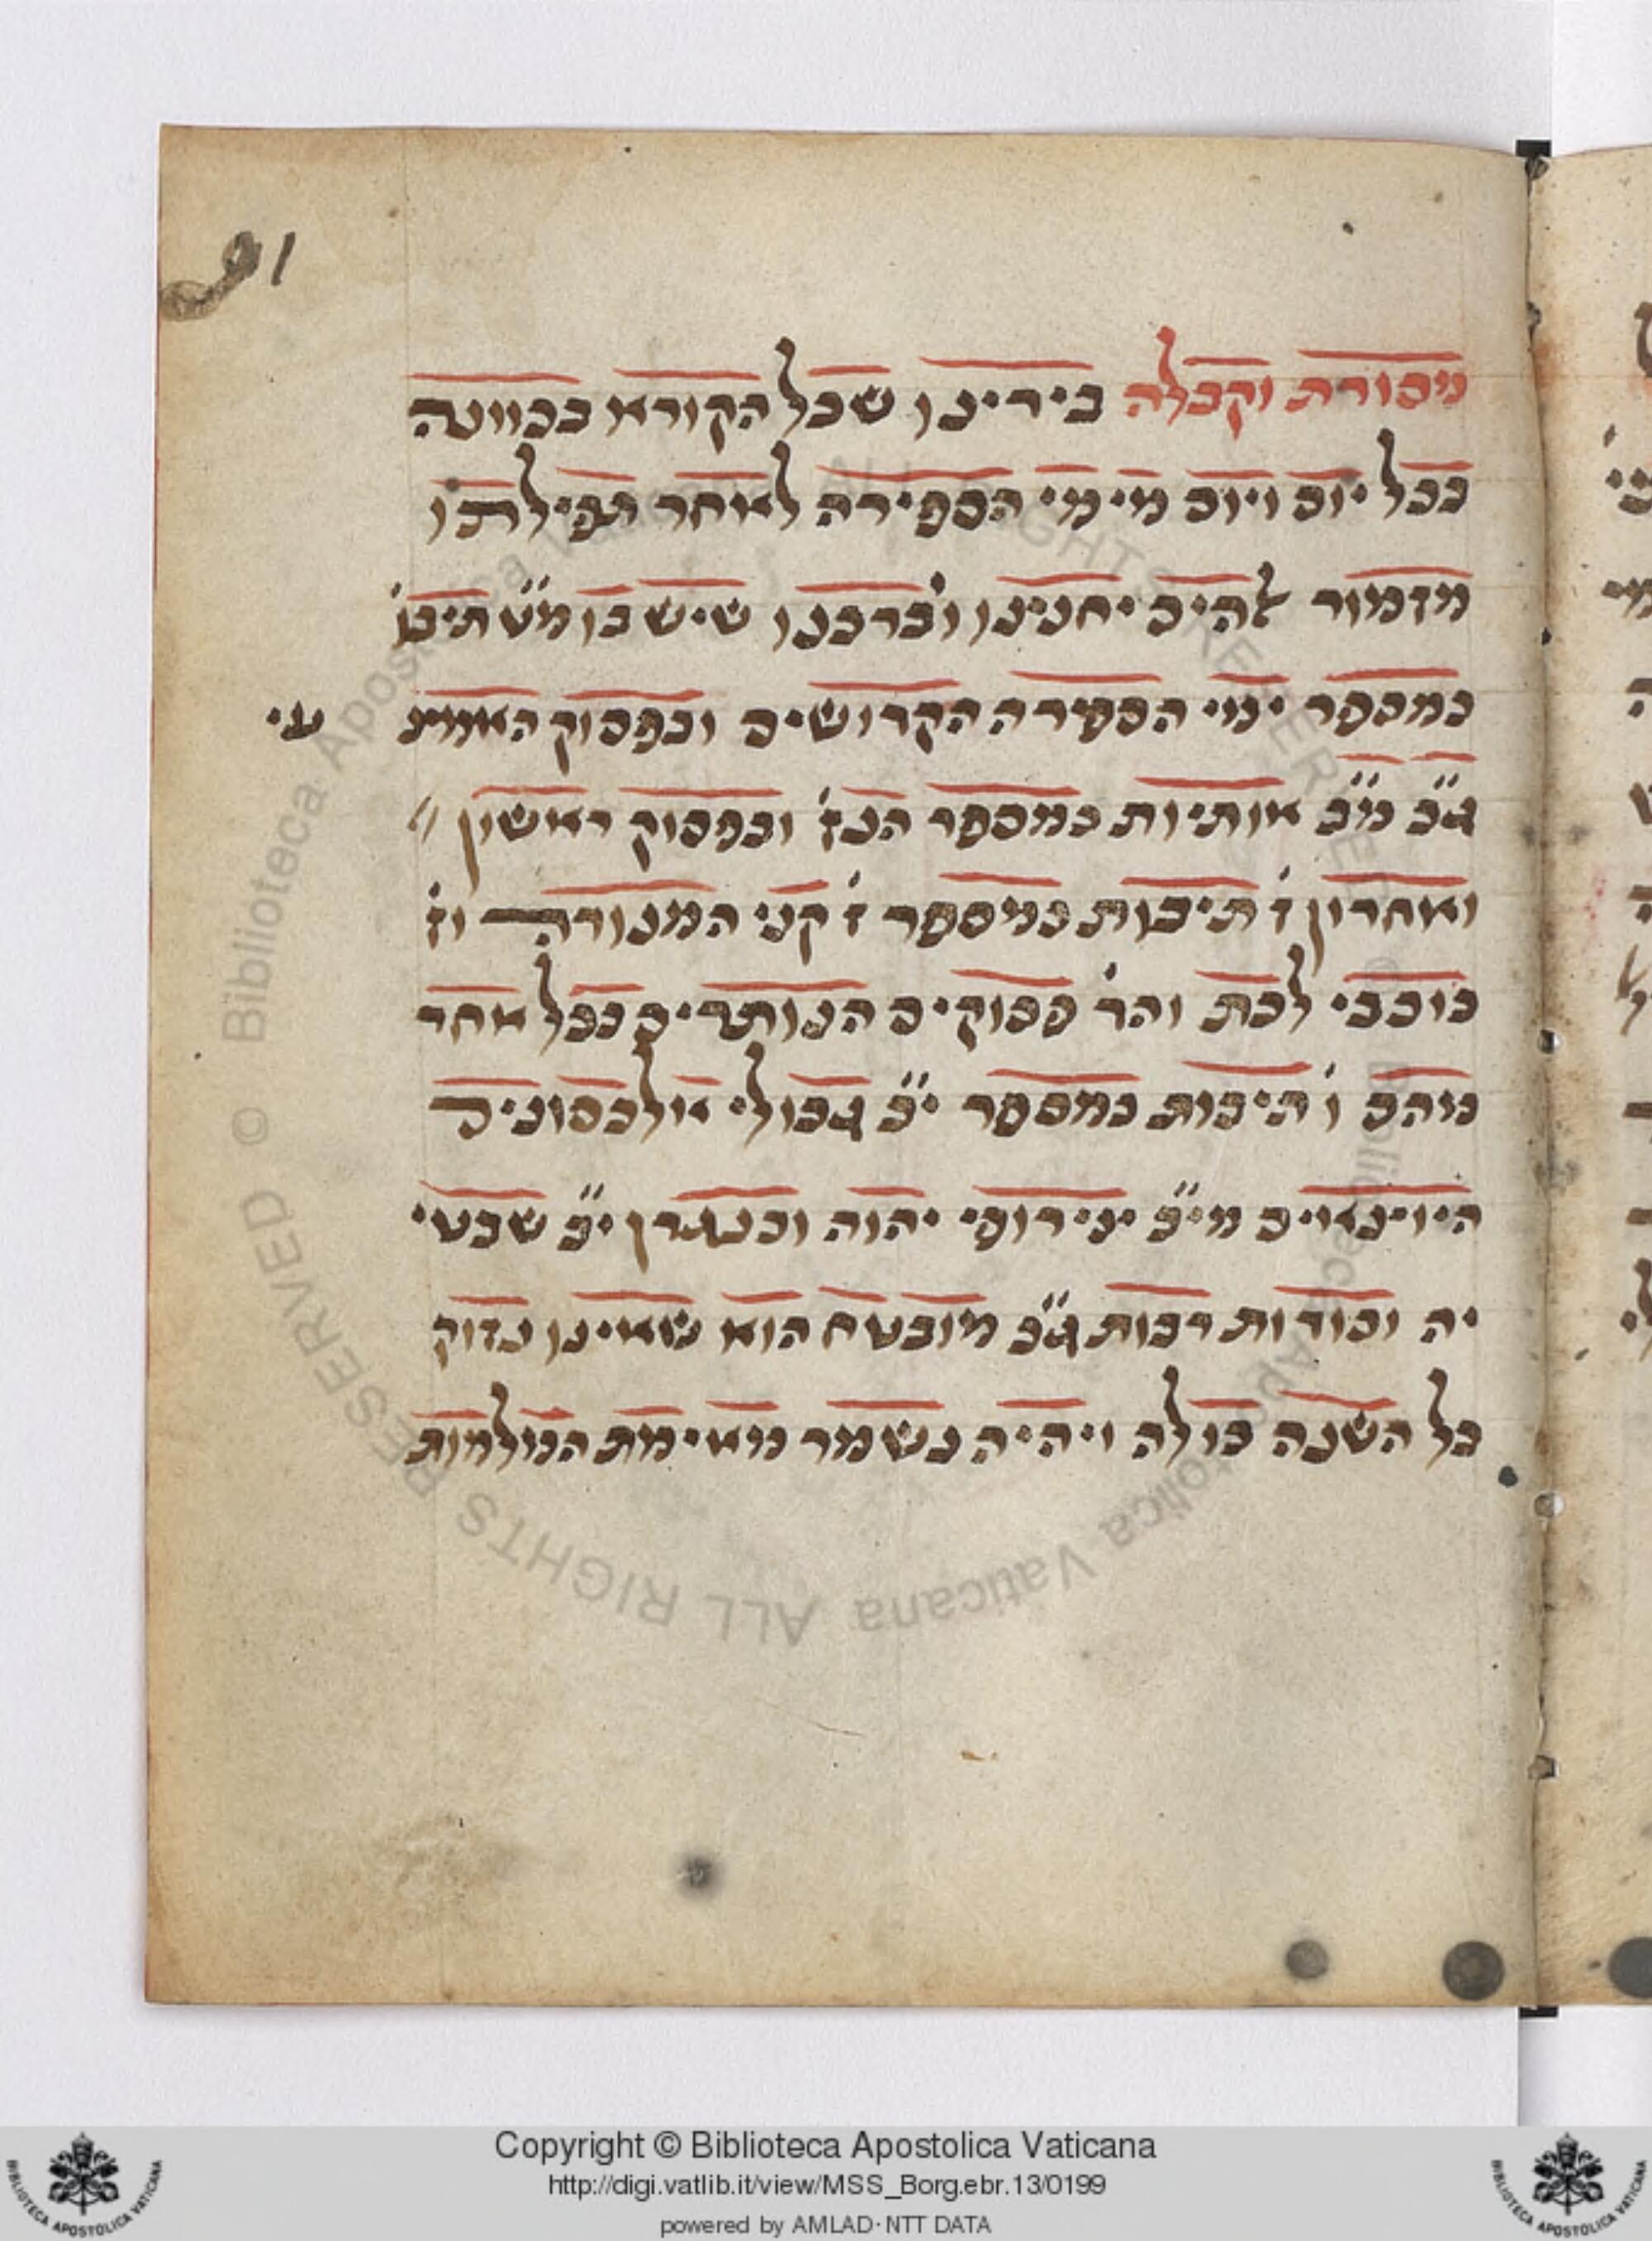 91
מסורת וקבלה בידינו שכל הקורא בכוונה
בכל יום ויום מימי הספירה לאחר תפילתו
מזמור אלהים יחננו ויברכנו שיש בו מ״ט תיבו׳
כמספר ימי הספירה הקדושים ובפסוק האמצ
עי
ג״כ מ״ט אותיות כמספר הנז׳ ובפסוק ראשון
ואחרון ז׳ תיבות כמספר ז׳ קני המנורה וז׳
כוכבי לכת והד׳ פסוקים הנותרים בכל אחד
מהם ו׳ תיבות כמספר י״ב גבולי אלכסונים
היוצאים מי״ב צירופי יהוה וכנגדן י״ב שבטי
יה וסודות רבות ג״כ מובטח הוא שאינו נזוק
כל השנה כולה ויהיה נשמר מאימת המלמות
Copyright © Biblioteca Apostolica Vaticana
http://digi.vatlib.it/view/MSS_Borg.ebr.13/0199
powered by AMLAD·NTT DATA